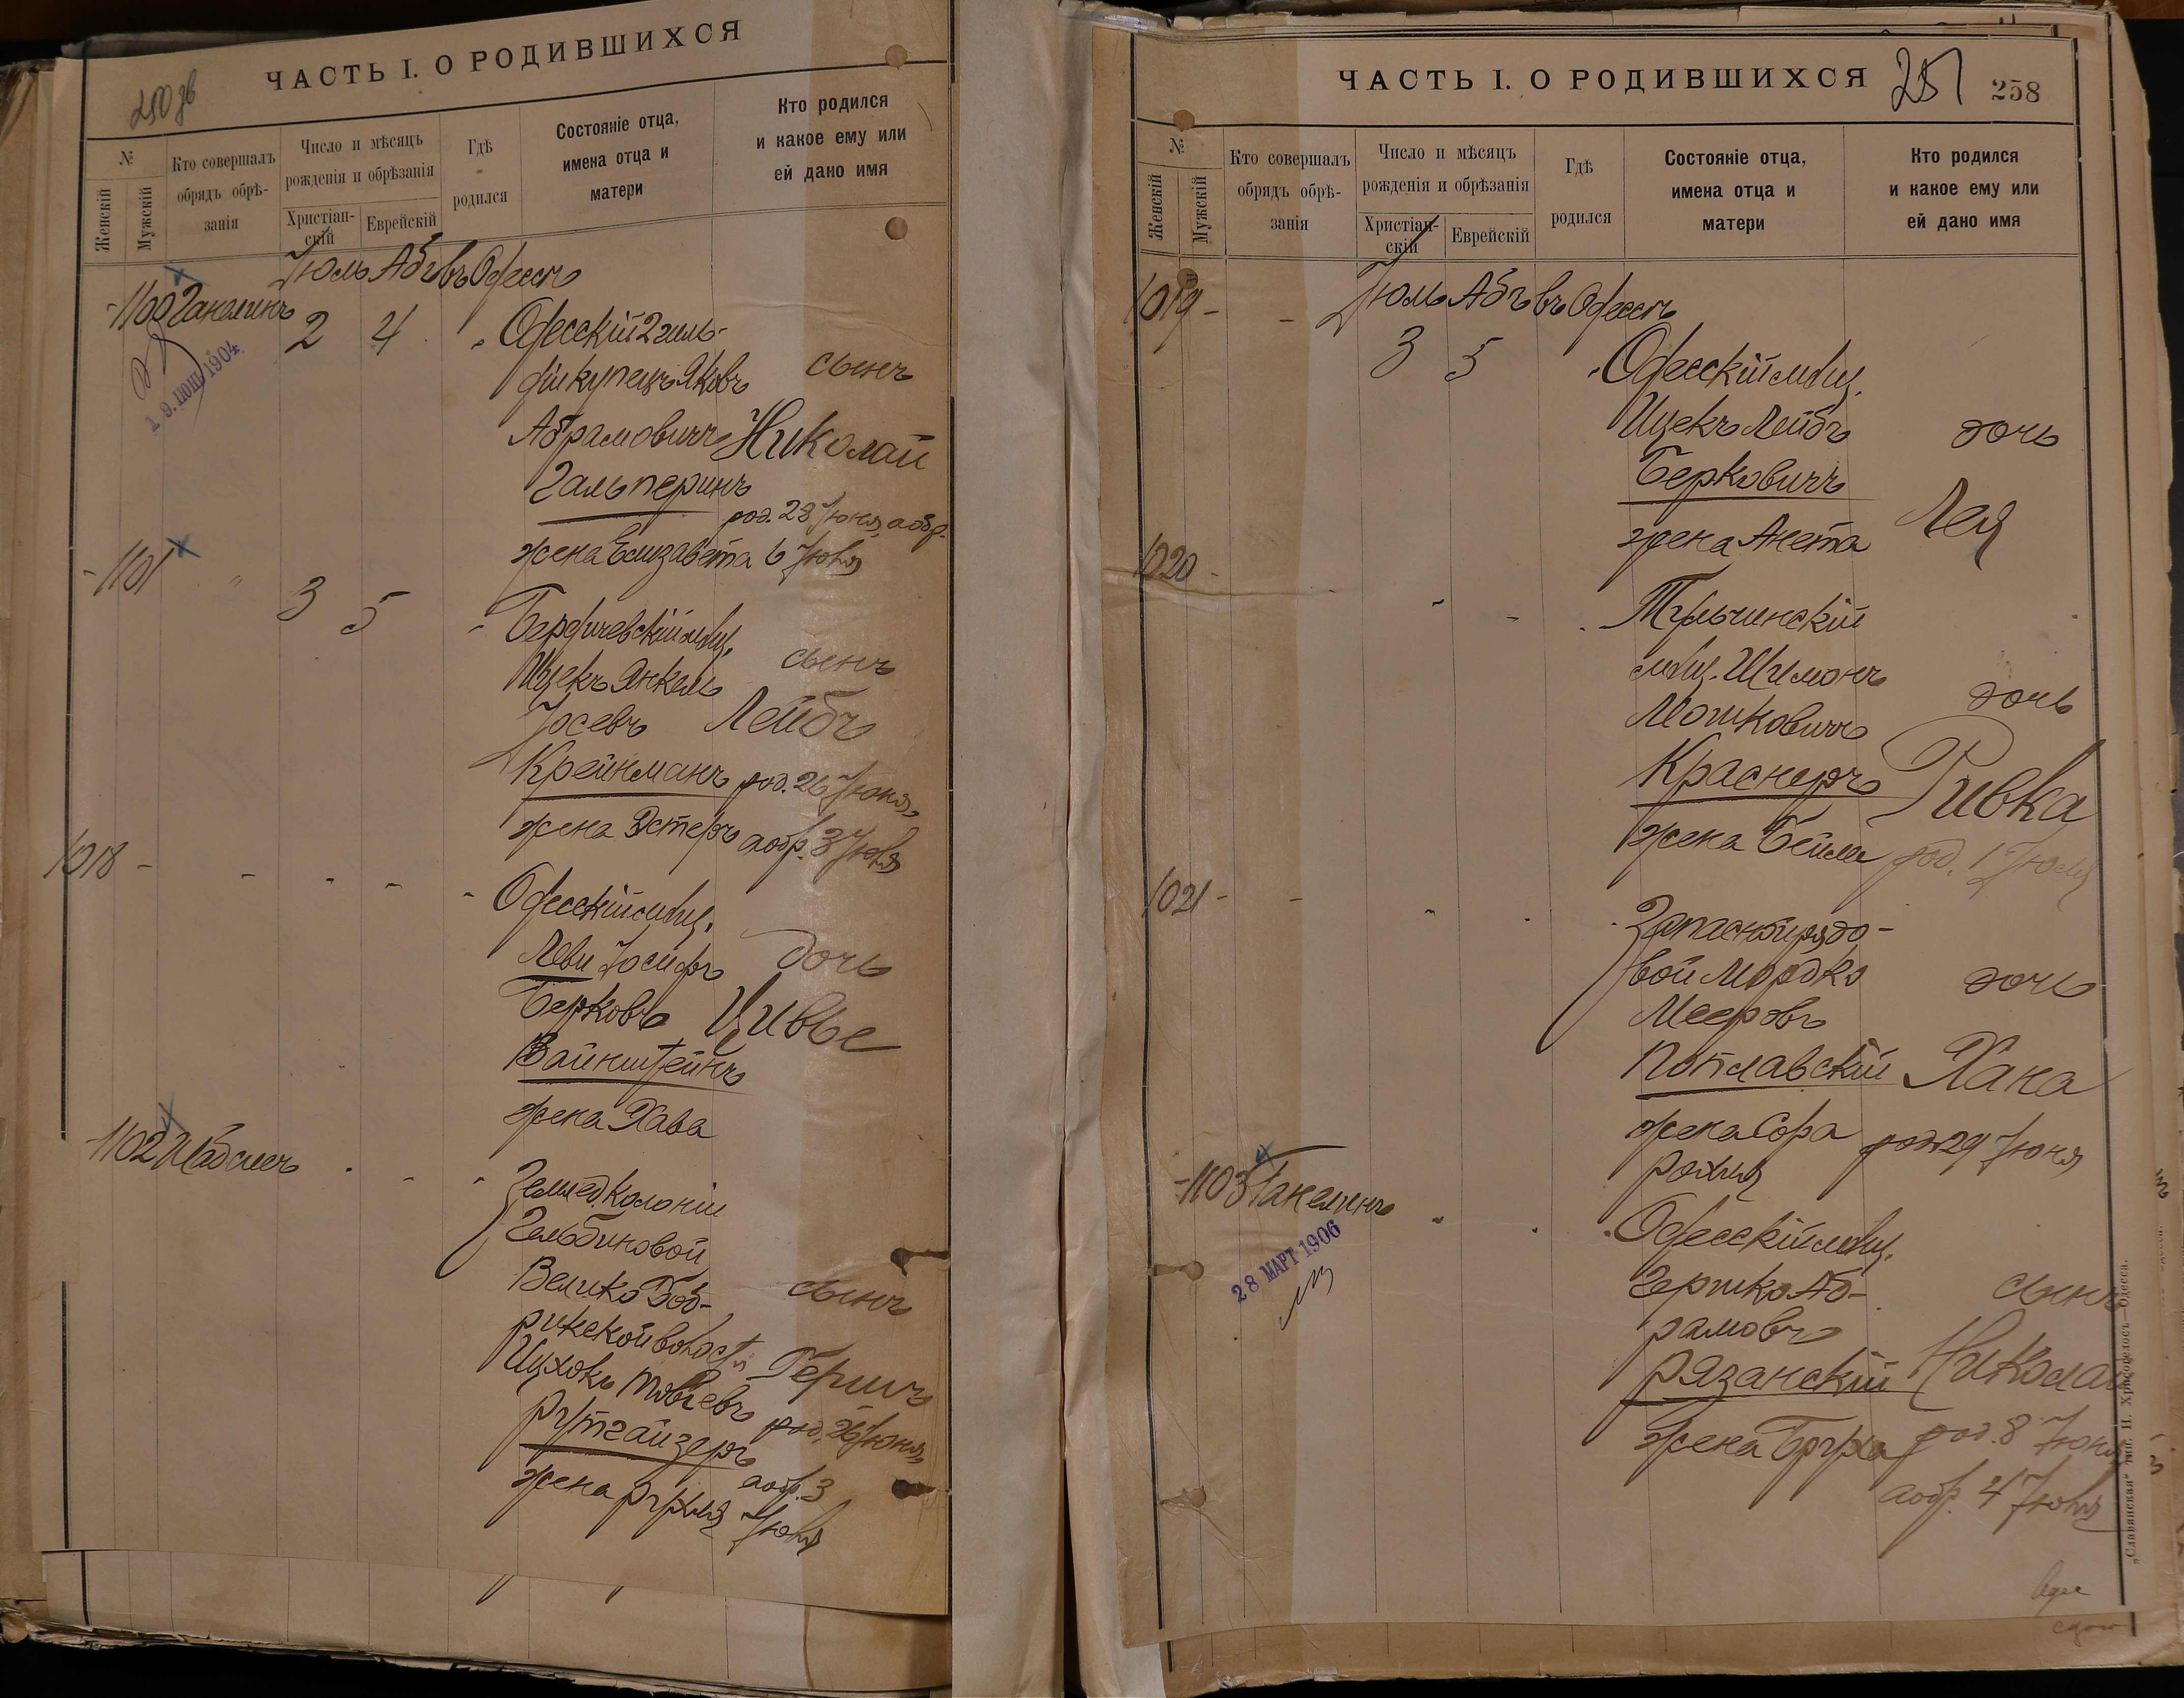 250 об
ЧАСТЬ I. О РОДИВШИХСЯ
№
Женскій
Мужскій
Кто совершалъ
обрядъ обрѣ-
занія
Число и мѣсяцъ
рожденія и обрѣзанія
Христіан-
скій
Еврейскій
Гдѣ
родился
Состояніе отца,
имена отца и
матери
Кто родился
и какое ему или
ей дано имя
Іюль Абъ въ Одессѣ
1100 Ганелинъ 2 4
19. ІЮН 1904
Одесскій 2 гиль-
діи купецъ Яковъ
Абрамовичъ
Гальперинъ
жена Елизавета
сынъ
Николай
род. 28 Іюня, а обр.
6 Іюля
1101 " 3 5
Бердичевскій мѣщ.
Ицекъ Янкель
Іосевъ
Крейнманъ
жена Эстеръ
сынъ
Лейбъ
род. 26 Іюня,
а обр. 3 Іюля
1018 - - - - -
Одесскій мѣщ.
Леви Іосифъ
Берковъ
Вайнштейнъ
жена Хава
дочь
Цивье
1102 Шабсисъ
Землед. колоніи
Гельбиновой
Велико Боб-
рикской волости
Ицхокъ Товіевъ
Рутгайзеръ
жена Рухля
сынъ
Гершъ
род. 26 Іюня,
а обр. 3
Іюля
ЧАСТЬ I. О РОДИВШИХСЯ
251
258
№
Женскій
Мужскій
Кто совершалъ
обрядъ обрѣ-
занія
Число и мѣсяцъ
рожденія и обрѣзанія
Христіан-
скій
Еврейскій
Гдѣ
родился
Состояніе отца,
имена отца и
матери
Кто родился
и какое ему или
ей дано имя
Іюль Абъ въ Одессѣ
1019 - - 3 5
Одесскій мѣщ.
Ицекъ Лейбъ
Берковичъ
жена Анета
дочь
Лея
1020 -
Тульчинскій
мѣщ. Шимонъ
Мошковичъ
Краснеръ
жена Бейла
дочь
Ривка
род. 1 Іюля
1021 - -
Запасной рядо-
вой Мордко
Мееровъ
Поплавскій
жена Сора
Рохля
дочь
Хана
род. 29 Іюня
1103 Ганелинъ
28 МАРТ 1906
Одесскій мѣщ.
Гершко Аб-
рамовъ
Рязанскій
жена Бруха
сынъ
Николай
род. 8 Іюня
а обр. 4 Іюля
„Славянская“ тип. Н. Хрисогелосъ—Одесса.